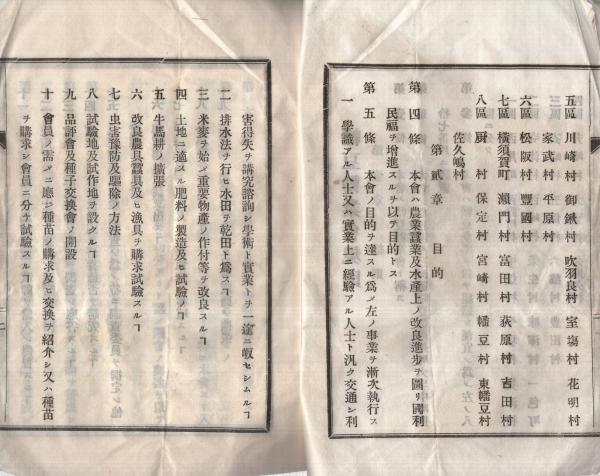 五區 川崎村 御鍬村 吹羽良村 室塲村 花明村
家武村 平原村
六區 松阪村 豐國村
七區 橫須賀町 瀨門村 富田村 荻原村 吉田村
八區 厨村 保定村 宮崎村 幡豆村 東幡豆村
佐久嶋村
第貳章 目的
第四條 本會ハ農業蠶業及水產上ノ改良進步ヲ圖リ國利
民福ヲ增進スルヲ以テ目的トス
第五條 本會ノ目的ヲ達スル爲メ左ノ事業ヲ漸次執行ス
一 學識アル人士又ハ實業上ニ經驗アル人士ト汎ク交通シ利
害得失ヲ講究諮詢シ學術ト實業トヲ一途ニ皈セシムルヿ
二 排水法ヲ行ヒ水田ヲ乾田ト爲スヿ
三 米麥ヲ始メ重要物產ノ作付等ヲ改良スルヿ
四 土地ニ適スル肥料ノ製造及ヒ試驗ノヿ
五 牛馬耕ノ擴張
六 改良農具蠶具及ヒ漁具ヲ購求試驗スルヿ
七 虫害豫防及驅除ノ方法
八 試驗地及試作地ヲ設クルヿ
九 品評會及種子交換會ノ開設
十 會員ノ需メニ應シ種苗ノ購求及ヒ交換ヲ紹介シ又ハ種苗
ヲ購求シ會員ニ分チ試驗スルヿ